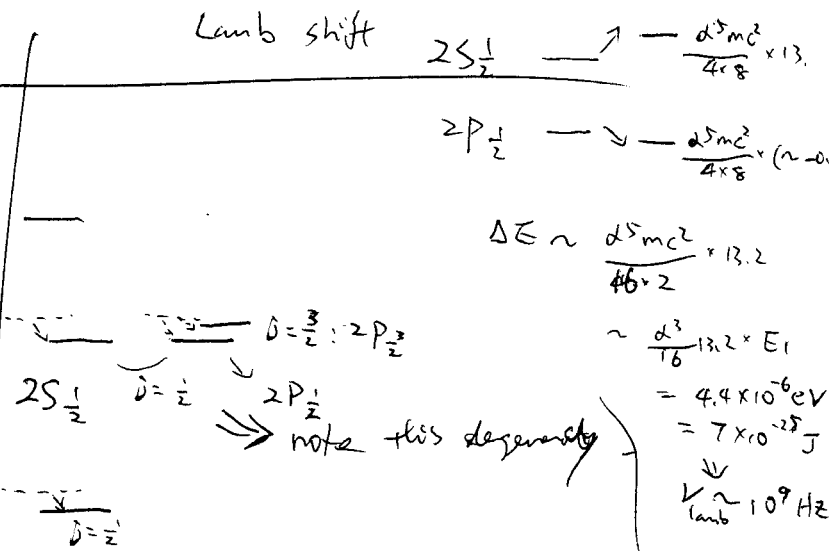 Lamb shift
2S 1/2 — ↗ — α⁵mc²/4×8 × 13.
2P 1/2 — ↘ — α⁵mc²/4×8 × (~ -0.
ΔE ~ α⁵mc²/16×2 × 13.2
~ α³/16 13.2 × E₁
= 4.4×10⁻⁶ eV
= 7×10⁻²⁵ J
⇓
ν lamb ~ 10⁹ Hz
j = 3/2 : 2P 3/2
2S 1/2 j = 1/2 2P 1/2
⇒ note this degeneracy
j = 1/2